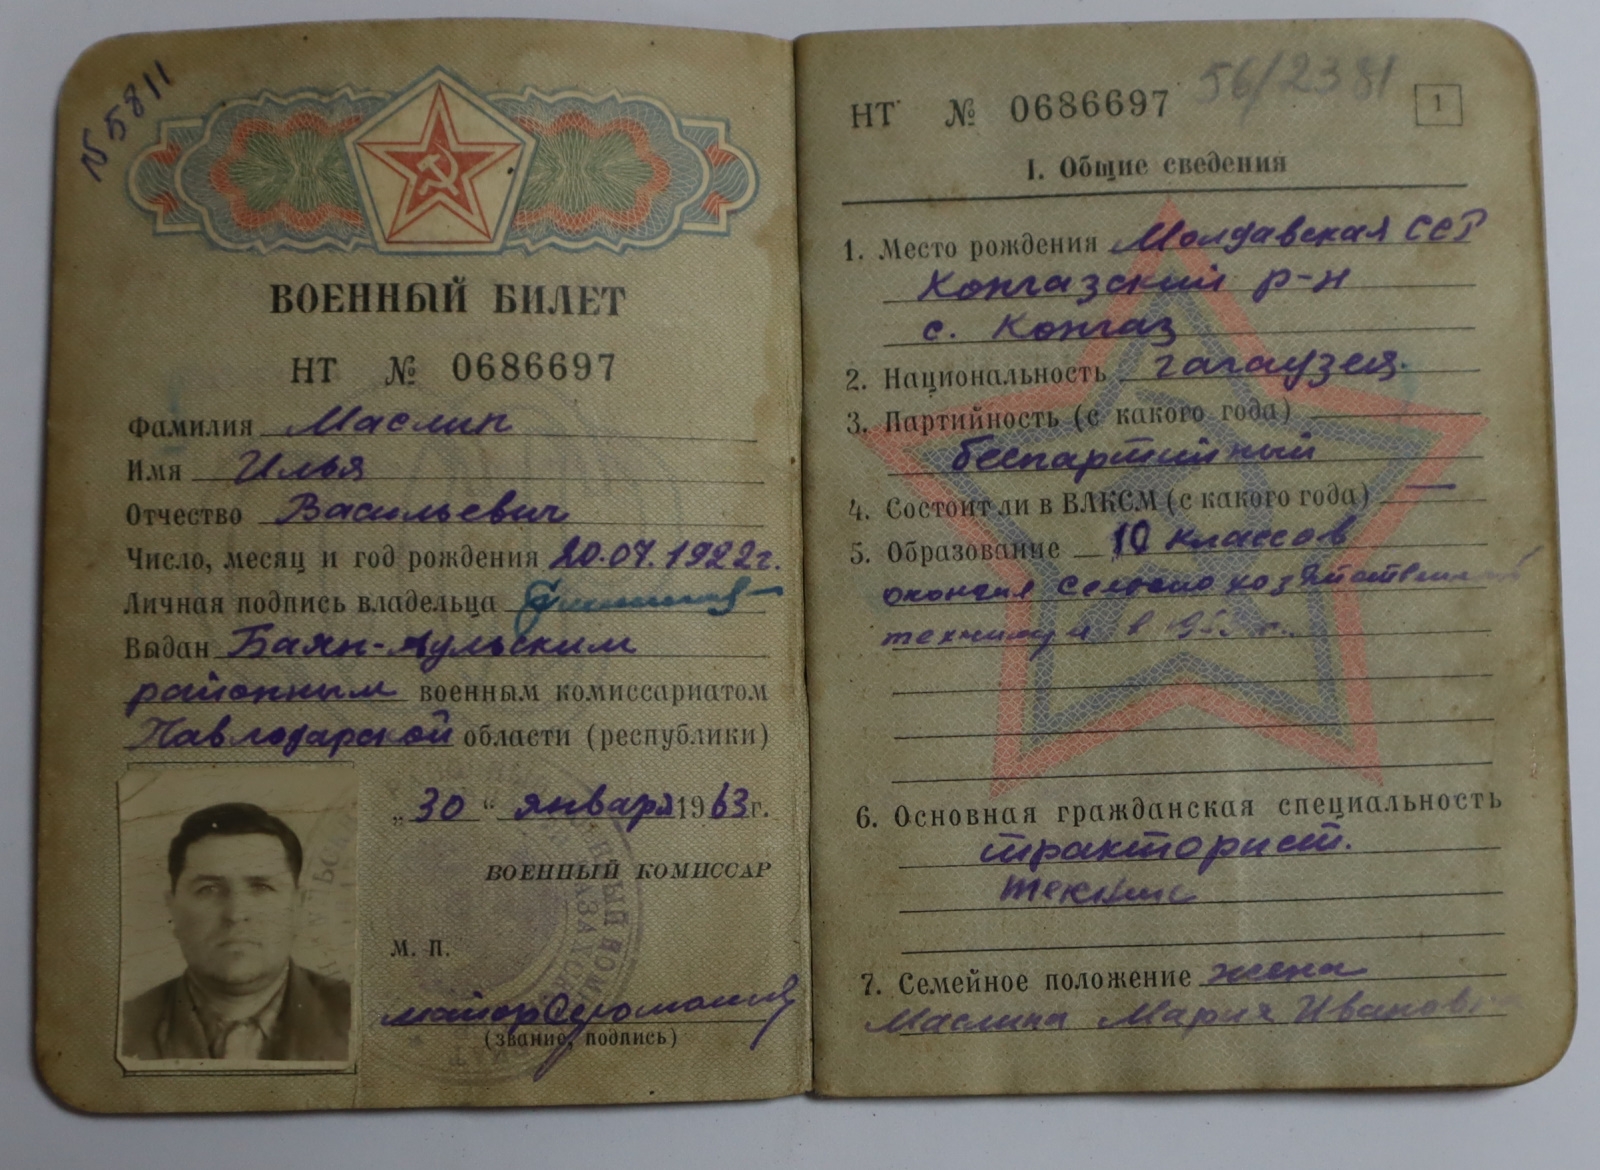 N 5811
ВОЕННЫЙ БИЛЕТ
НТ № 0686697
Фамилия Маслин
Имя Илья
Отчество Васильевич
Число, месяц и год рождения 20.07.1922г.
Личная подпись владельца
Выдан Баян-Аульским
районным военным комиссариатом
Павлодарской области (республики)
„30“ января 1963 г.
ВОЕННЫЙ КОМИССАР
М. П.
майор
(звание, подпись)
56/2381
НТ № 0686697
1
I. Общие сведения
1. Место рождения Молдавская ССР
Конгазский р-н
с. Конгаз
2. Национальность гагаузец.
3. Партийность (с какого года)
беспартийный
4. Состоит ли в ВЛКСМ (с какого года) —
5. Образование 10 классов
окончил сельскохозяйственный
техникум в г.
6. Основная гражданская специальность
тракторист.
техник
7. Семейное положение жена
Маслина Мария Ивановна